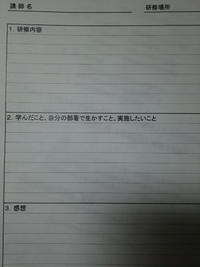 講師名 研修場所
1. 研修内容
2. 学んだこと、自分の部署で生かすこと、実施したいこと
3. 感想